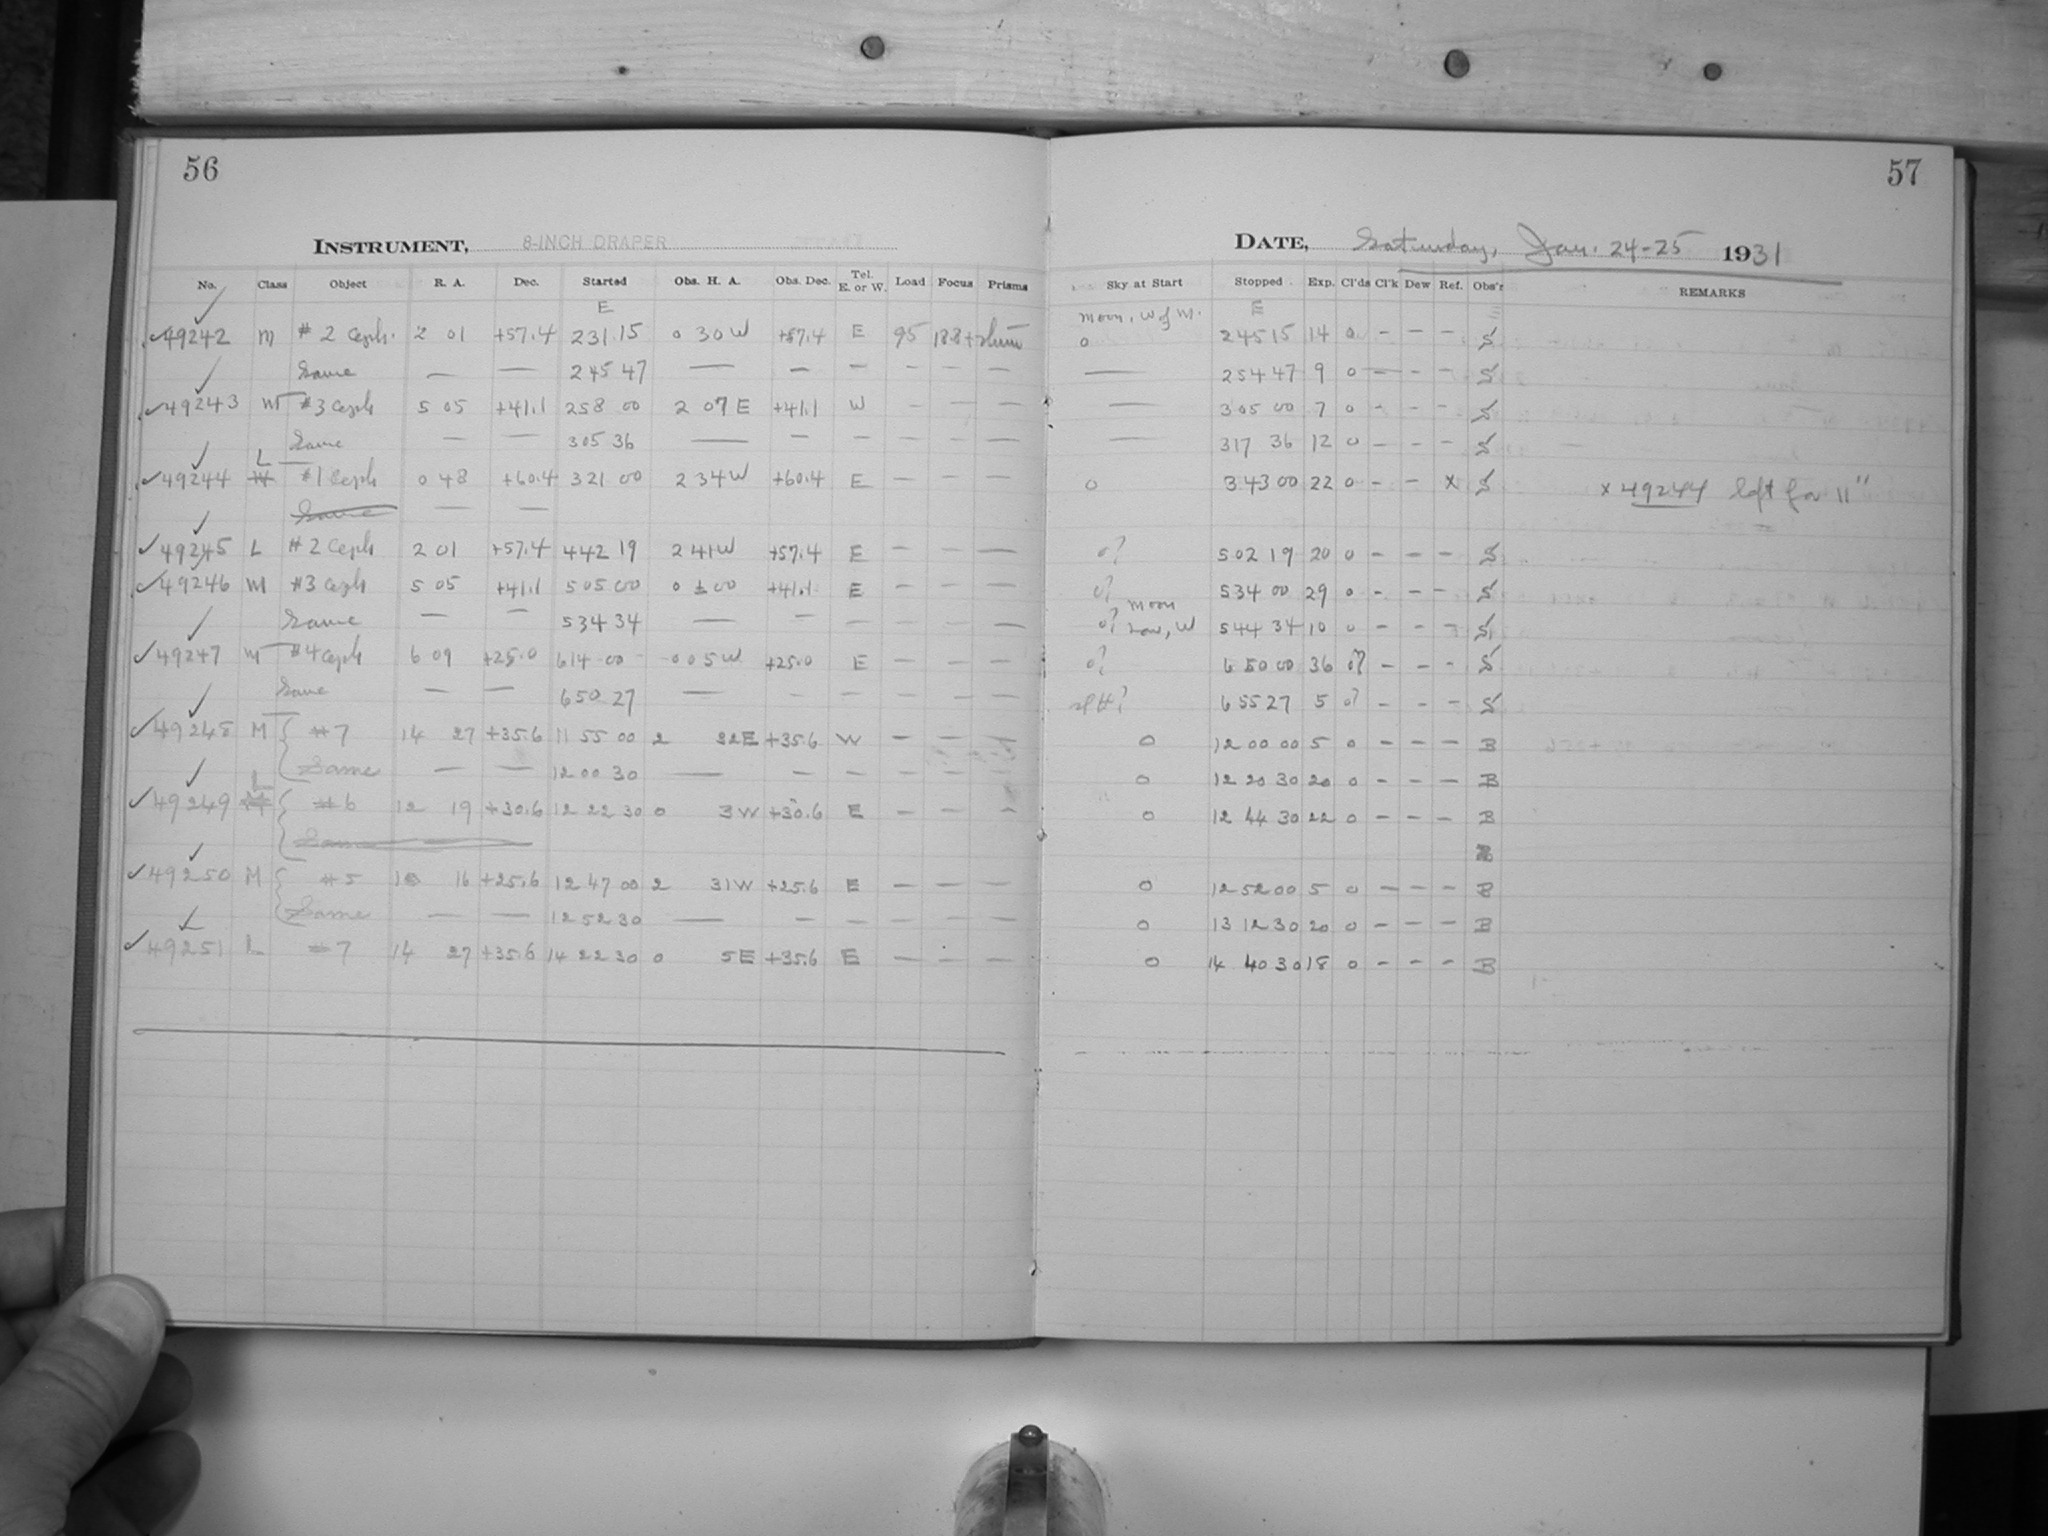 56
INSTRUMENT, 8-INCH DRAPER
No. Class Object R. A. Dec. Started Obs. H. A. Obs. Dec. Tel. E. or W. Load Focus Prisms
E
49242 M #2 Ceph. 2 01 +57.4 231 15 0 30 W +57.4 E 95 188+
Same — — 245 47 — — — — — —
49243 M #3 Ceph 5 05 +41.1 258 00 2 07 E +41.1 W — — —
Same — — 305 36 — — — — — —
L
49244 #1 Ceph 0 48 +60.4 321 00 2 34 W +60.4 E — — —
Same — —
49245 L #2 Ceph 2 01 +57.4 442 19 2 41 W +57.4 E — — —
49246 M #3 Ceph 5 05 +41.1 505 00 0 ± 00 +41.1 E — — —
Same — — 534 34 — — — — — —
49247 M #4 Ceph 6 09 +25.0 614 00 0 05 W +25.0 E — — —
Same — — 650 27 — — — — — —
49248 M #7 14 27 +35.6 11 55 00 2 22 E +35.6 W — — —
Same — — 12 00 30 — — — — — —
L
49249 M #6 12 19 +30.6 12 22 30 0 3 W +30.6 E — — —
Same
49250 M #5 10 16 +25.6 12 47 00 2 31 W +25.6 E — — —
Same — — 12 52 30 — — — — — —
49251 L #7 14 27 +35.6 14 22 30 0 5 E +35.6 E — — —
57
DATE, Saturday, Jan. 24-25 1931
Sky at Start Stopped Exp. Cl'ds Cl'k Dew Ref. Obs'r REMARKS
Moon, W of M. E
0 245 15 14 0 — — — S
— 254 47 9 0 — — — S
— 305 00 7 0 — — — S
— 317 36 12 0 — — — S
0 343 00 22 0 — — x S x 49244 left for 11"
0? 502 19 20 0 — — — S
0? 534 00 29 0 — — — S
moon
0? low, W 544 34 10 0 — — — S
0? 650 00 36 0? — — — S
655 27 5 0? — — — S
0 12 00 00 5 0 — — — B
0 12 20 30 20 0 — — — B
0 12 44 30 22 0 — — — B
0 12 52 00 5 0 — — — B
0 13 12 30 20 0 — — — B
0 14 40 30 18 0 — — — B